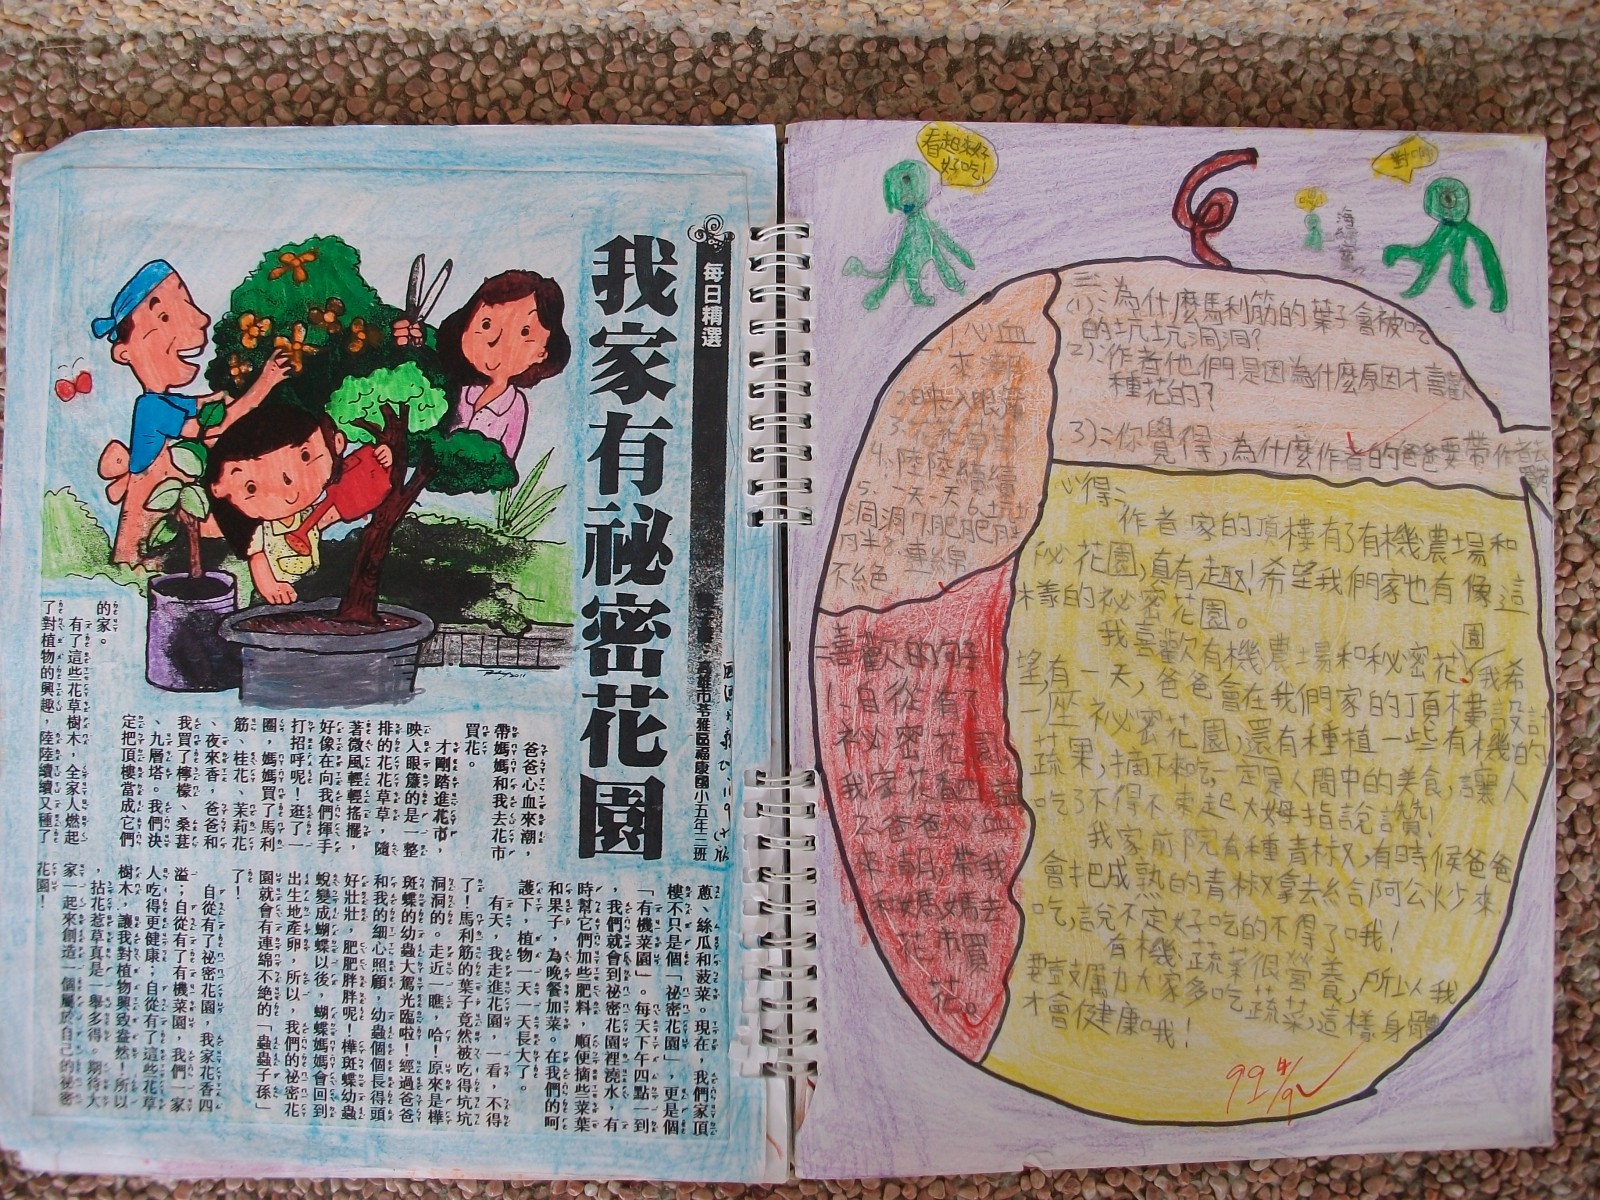 每日精選
我家有祕密花園
高雄市苓雅區福康國小五年二班
爸爸心血來潮,
帶媽媽和我去花市
買花。
才剛踏進花市,
映入眼簾的是一整
排的花花草草,隨
著微風輕輕搖擺,
好像在向我們揮手
打招呼呢!逛了一
圈,媽媽買了馬利
筋、桂花、茉莉花
、夜來香,爸爸和
我買了檸檬、桑葚
、九層塔。我們決
定把頂樓當成它們
的家。
有了這些花草樹木,全家人燃起
了對植物的興趣,陸陸續續又種了
蔥、絲瓜和菠菜。現在,我們家頂
樓不只是個「祕密花園」,更是個
「有機菜園」。每天下午四點一到
,我們就會到祕密花園裡澆水,有
時幫它們加些肥料,順便摘些菜葉
和果子,為晚餐加菜。在我們的呵
護下,植物一天一天長大了。
有天,我走進花園,一看,不得
了!馬利筋的葉子竟然被吃得坑坑
洞洞的。走近一瞧,哈!原來是樺
斑蝶的幼蟲大駕光臨啦!經過爸爸
和我的細心照顧,幼蟲個個長得頭
好壯壯,肥肥胖胖呢!樺斑蝶幼蟲
蛻變成蝴蝶以後,蝴蝶媽媽會回到
出生地產卵,所以,我們的祕密花
園就會有連綿不絕的「蟲蟲子孫」
了!
自從有了祕密花園,我家花香四
溢;自從有了有機菜園,我們一家
人吃得更健康;自從有了這些花草
樹木,讓我對植物興致盎然!所以
,拈花惹草真是一舉多得。期待大
家一起來創造一個屬於自己的祕密
花園!
看起來好
好吃!
對啊
一、1.心血
來潮
2.映入眼簾
3.花花草草
4.陸陸續續
5.一天一天 6.坑坑
洞洞 7.肥肥胖
胖 8.連綿
不絕
二喜歡的句子
1.自從有了
祕密花園
我家花香四溢
2.爸爸心血
來潮,帶我
和媽媽去
花市買
花。
三、
(1)為什麼馬利筋的葉子會被吃
的坑坑洞洞?
2)作者他們是因為什麼原因才喜歡
種花的?
3)你覺得,為什麼作者的爸爸要帶作者去
心得:
作者家的頂樓有了有機農場和
祕花園,真有趣!希望我們家也有像這
樣的祕密花園。
我喜歡有機農場和秘密花園,我希
望,有一天,爸爸會在我們家的頂樓設計
一座祕密花園,還有種植一些有機的
蔬果,摘下來吃,一定是人間中的美食,讓人
吃了不得不束起大姆指說讚!
我家前院有種青椒,有時候爸爸
會把成熟的青椒拿去給阿公炒來
吃,說不定好吃的不得了哦!
有機蔬菜很營養,所以我
要鼓勵大家多吃蔬菜,這樣身體
才會健康哦!
99 4/9